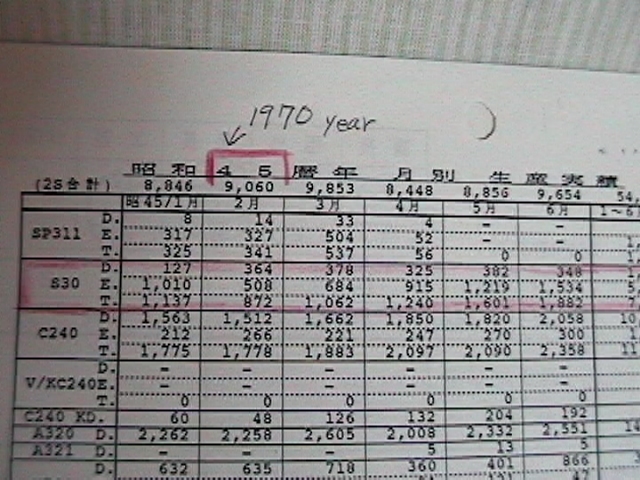 1970 year
昭和 45 暦年 月別 生産実績
(2S合計) 8,846 9,060 9,853 8,448 8,856 9,654 54,
昭45/1月 2月 3月 4月 5月 6月 1～6
D. 8 14 33 4 - -
SP311 E. 317 327 504 52 - -
T. 325 341 537 56 0 0
D. 127 364 378 325 382 348
S30 E. 1,010 508 684 915 1,219 1,534
T. 1,137 872 1,062 1,240 1,601 1,882
D. 1,563 1,512 1,662 1,850 1,820 2,058 10,
C240 E. 212 266 221 247 270 300
T. 1,775 1,778 1,883 2,097 2,090 2,358 11
D. - - - - - -
V/KC240E. - - - - - -
T. 0 0 0 0 0 0
C240 KD. 60 48 126 132 204 192
A320 D. 2,262 2,258 2,605 2,008 2,332 2,551 14
A321 D. - - - 5 13 5
D. 632 635 718 360 401 866